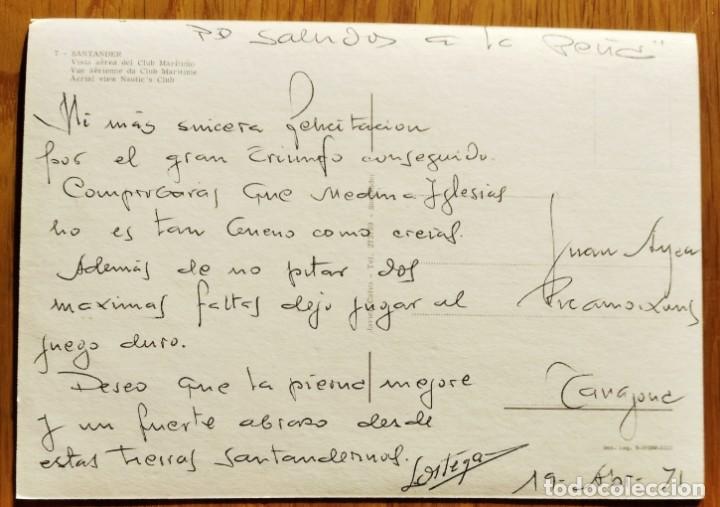 PD Saludos a la Peña"
7 - SANTANDER
Vista aérea del Club Marítimo
Vue aérienne du Club Maritime
Aerial view Nautic's Club
Mi más sincera felicitacion
por el gran triunfo conseguido.
Comprobarás que Medina Iglesias
no es tan bueno como creias.
Además de no pitar dos
maximas faltas dejo jugar al
juego duro.
Deseo que la pierna mejore
y un fuerte abrazo desde
estas tierras santanderinas.
Ortega
Juan
Tarragona
19-Abr-71
todocoleccion.net